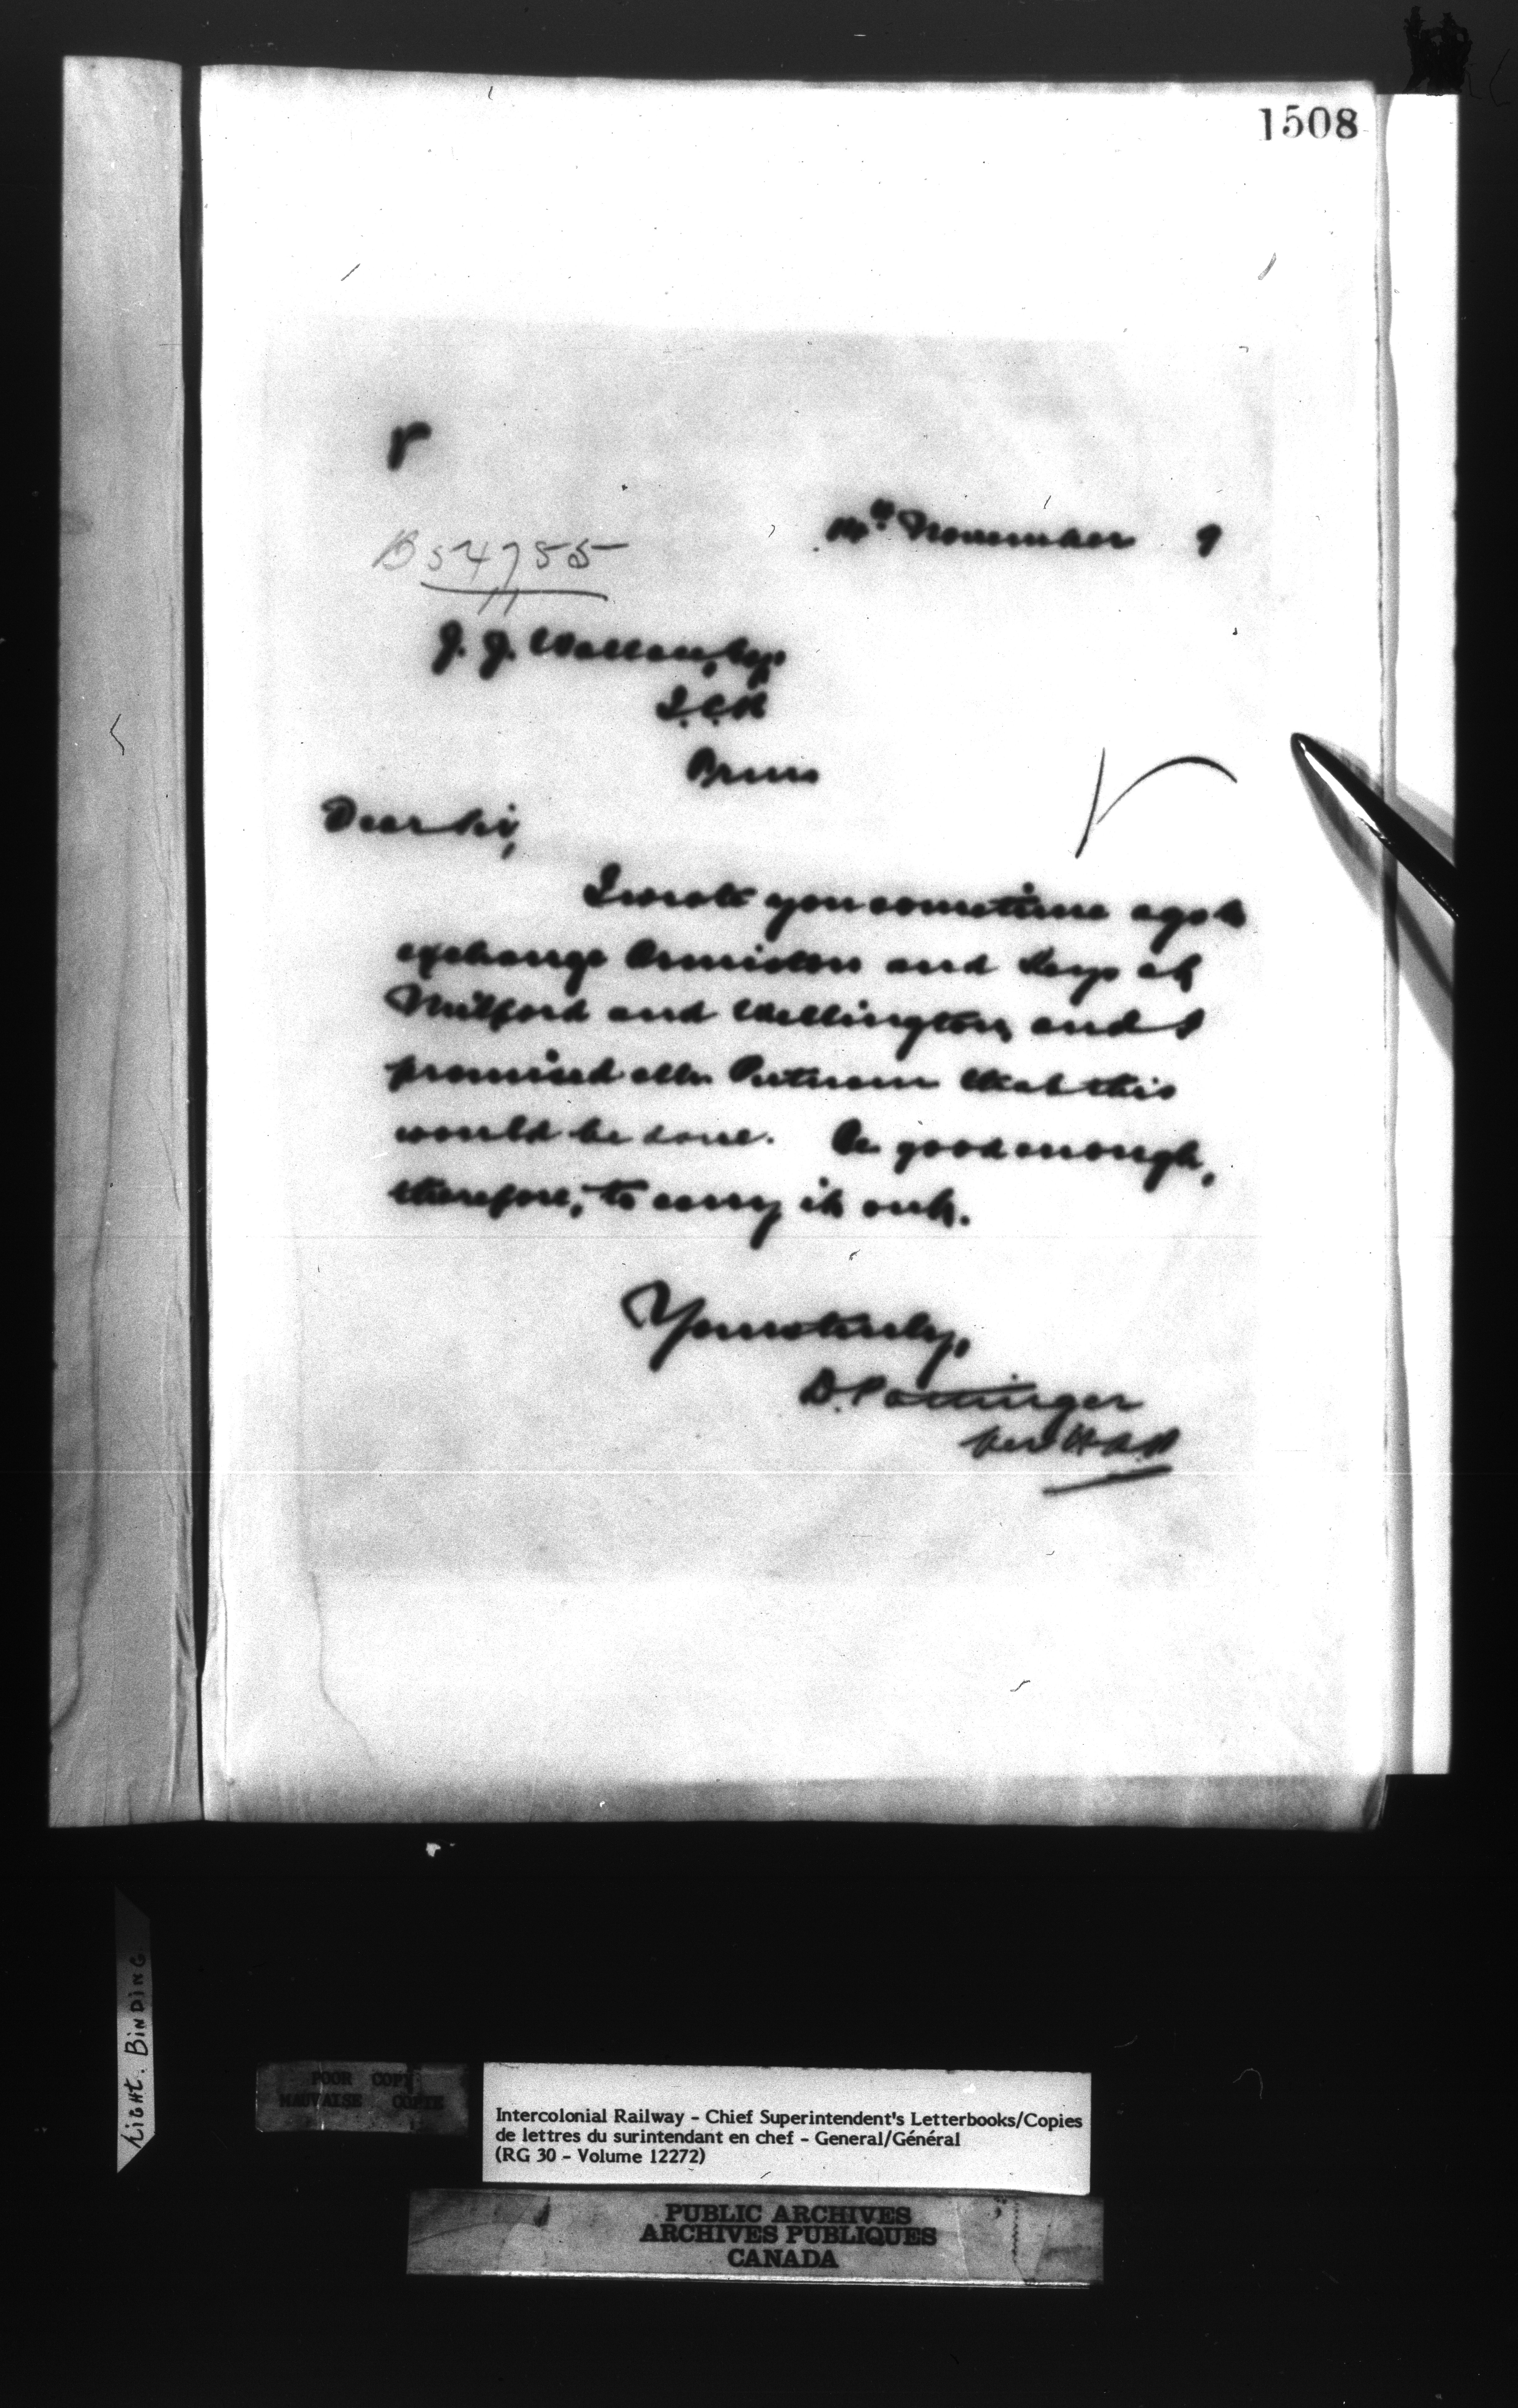 1508
P
14th November 9
B 54755
J. J. Wallace, Esq
I.C.R
Dear Sir,
I wrote you sometime ago to
exchange Ormiston and Keys at
Milford and Wellington, and I
promised Mr. Putnam that this
would be done. Be good enough,
therefore, to carry it out.
Yours truly,
D. Pottinger
per
TIGHT. BINDING
POOR COPY
MAUVAISE COPIE
Intercolonial Railway - Chief Superintendent's Letterbooks/Copies
de lettres du surintendant en chef - General/Général
(RG 30 - Volume 12272)
PUBLIC ARCHIVES
ARCHIVES PUBLIQUES
CANADA